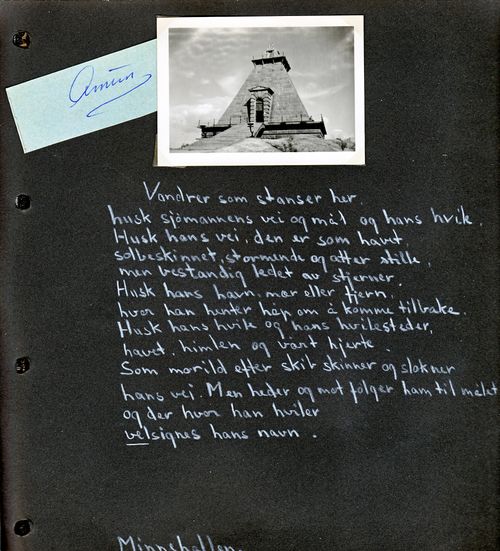 Amūn
Vandrer som stanser her,
husk sjömannens vei og mål og hans hvik.
Husk hans vei, den er som havet,
solbeskinnet, stormende og atter stille,
men bestandig ledet av stjerner.
Husk hans havn, nær eller fjern,
hvor han henter håp om å komme tilbake.
Husk hans hvik og hans hvilesteder,
havet, himlen og vårt hjerte.
Som morild efter skib skinner og slokner
hans vei. Men heder og mot følger ham til målet
og der hvor han hviler
velsignes hans navn.
Minnehallen.